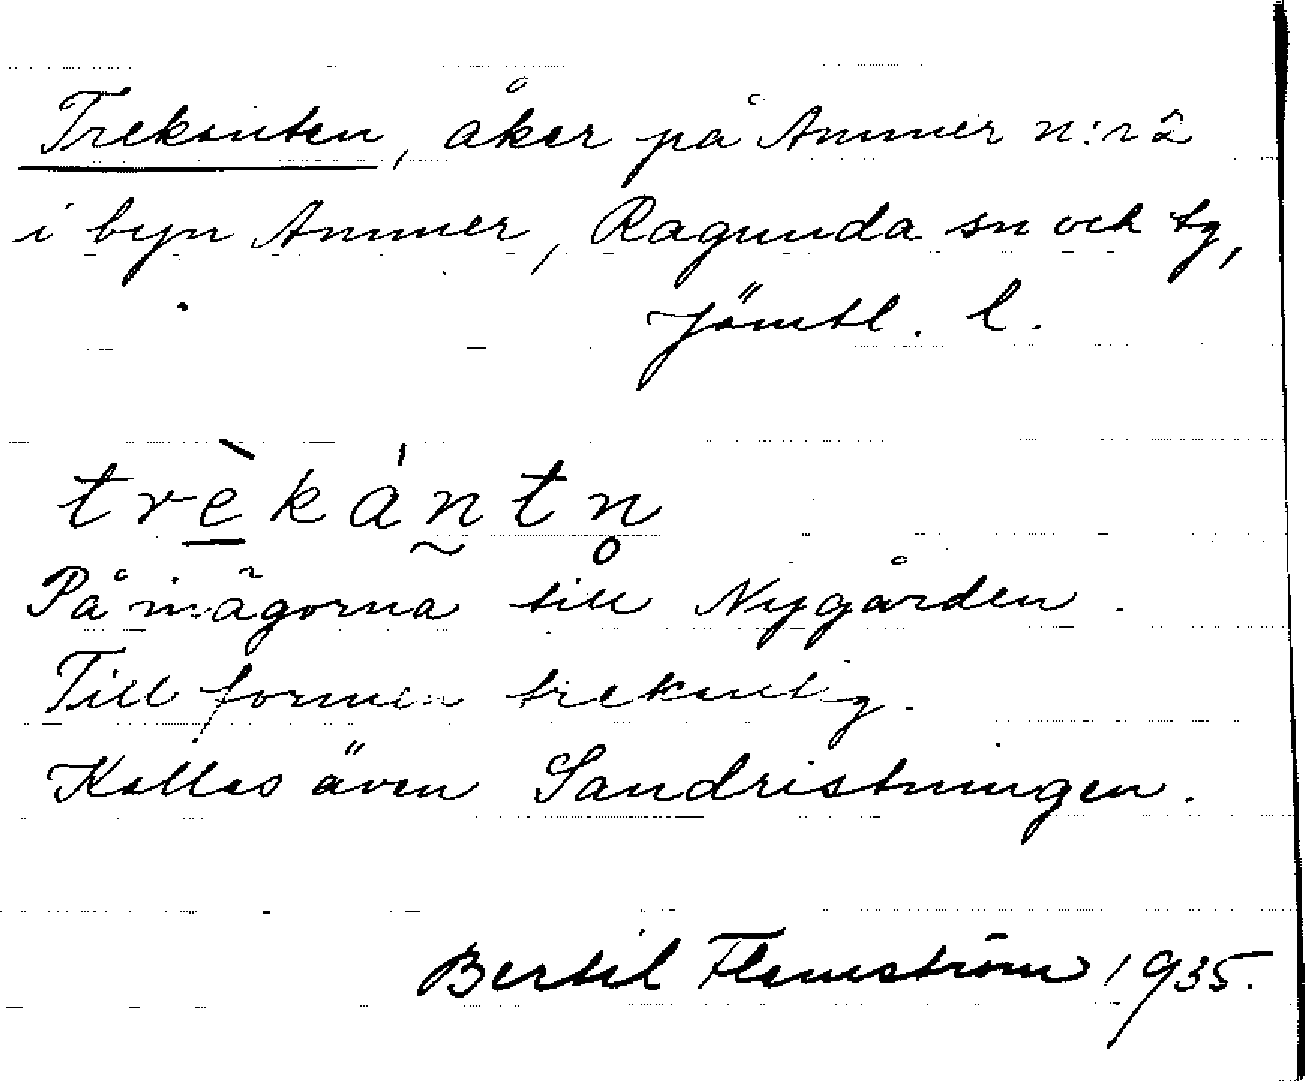 Trekanten, åker på Ammer n:r 2
i byn Ammer, Ragunda sn och tg,
Jämtl. l.
trèkántn̥
På inägorna till Nygården.
Till formen trekantig.
Kallas även Sandristningen.
Bertil Flemström 1935.